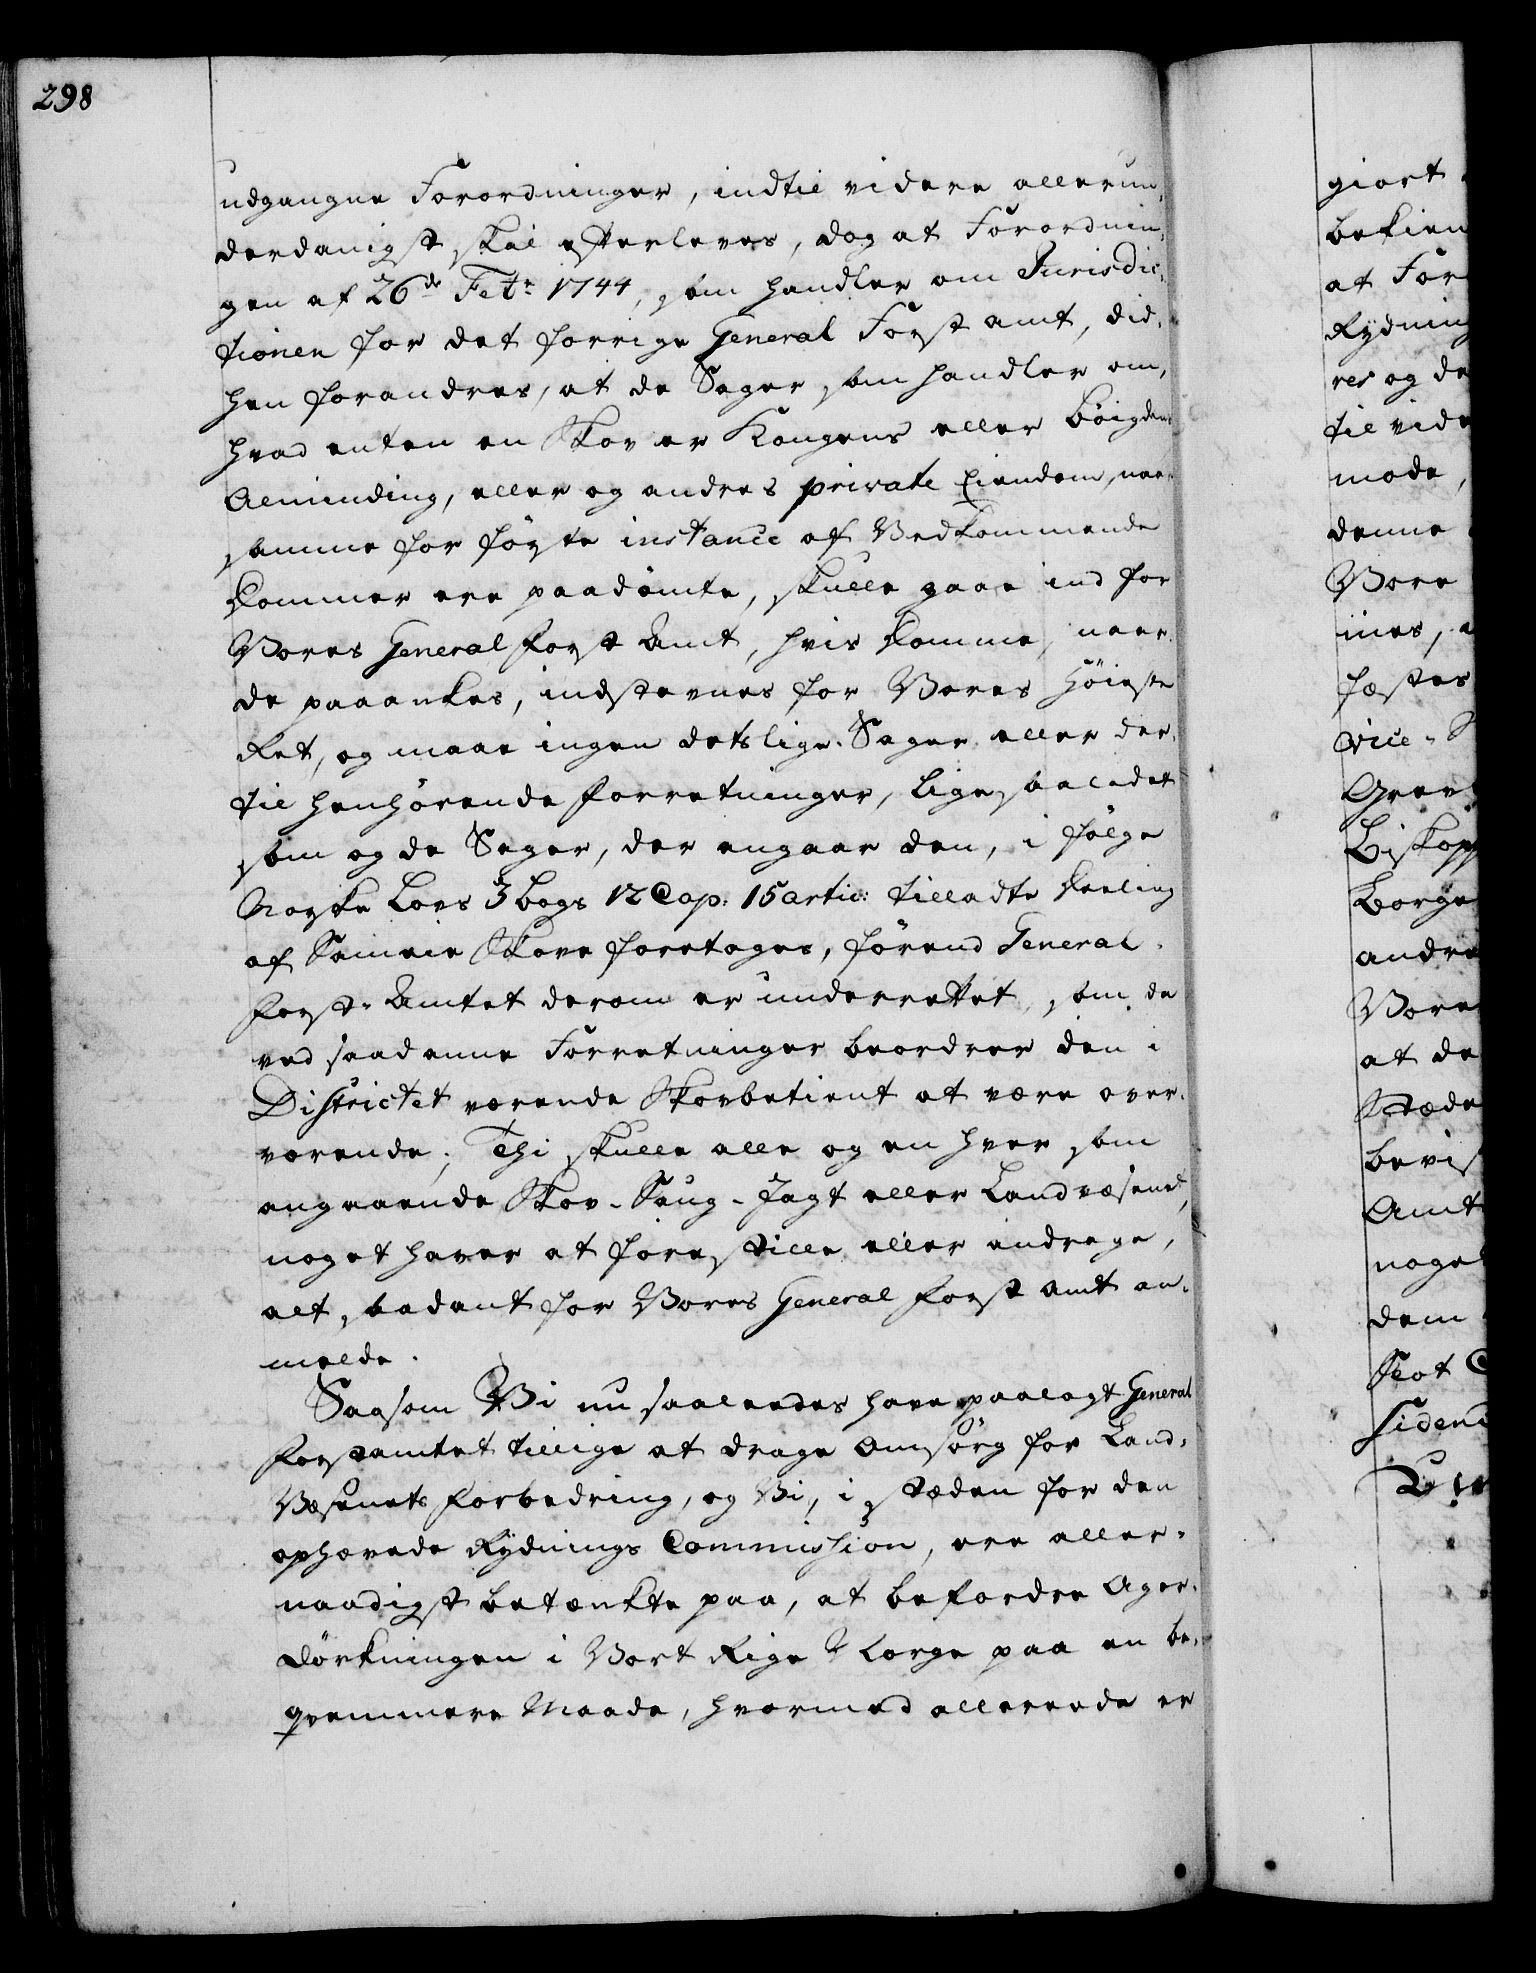 298
udgangne Forordninger, indtil videre allerun,
derdanigst skal efterleves, dog at Forordnin,
gen af 26de Febr: 1744, som handler om Jurisdic,
tionen for det forrige General Forst amt, did,
hen forandres, at de Sager som handler om,
hvad enten en Skov er Kongens eller Böigdens
Alminding, eller og andres private Eiendom, naar
samme for förste instance af Vedkommende
Dommer ere paadömte, skulle gaae ind for
Vores General Forst Amt, hvis Domme, naar
de paaankes, indstevnes for Vores Höieste
Ret, og maae ingen detslige Sager eller der,
til henhörende Forretninger, lige saaledet
som og de Sager, der angaar den, i fölge
Norske Lovs 3 Bogs 12 Cap: 15 artic: tilladte Deeling
af Sameie Skove foretages, förend General-
Forst-Amtet derom er underrettet, som da
ved saadanne Forretninger beordrer den i
Districtet værende Skovbetient at være over,
værende; Thi skulle alle og en hver som
angaaende Skov-Saug-Jagt eller Landvæsenet,
noget haver at forestille eller andrage,
alt saadant for Vores General Forst Amt an,
melde.
Saasom Vi nu saaledes have paalagt General
Forstamtet tillige at drage Omsörg for Land,
Væsenets Forbedring, og Vi, i stæden for den
ophævede Rydnings Commission, ere aller,
naadigst betænkte paa, at befordre Ager,
dörkningen i Vort Rige Norge paa en be,
qvemmere Maade, hvormed allereede er
giort
bekien
at For
Rydning
res og de
til vide
mode,
denne
Vore
ines, a
fæstes
Vice-S
Grev
Biskopp
Borge
andre
Vore
at de
Stæde
bevis
Amt
noget
dem
Slot C
Sidend